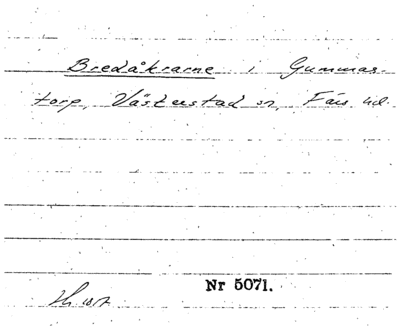 Bredåkrarne i Gummas-
torp, Västerstad sn, Färs hd.
Nr 5071.